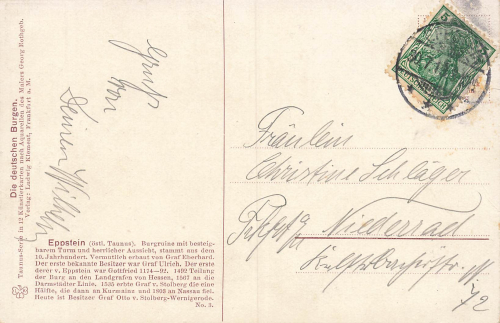 Die deutschen Burgen.
Taunus-Serie in 12 Künstlerkarten nach Aquarellen des Malers Georg Rothgeb.
Verlag: Ludwig Klement, Frankfurt a. M.
Gruß
von
Deinen Wilhelm
Fräulein
Christine Schläger
Niederrad
Eppstein (östl. Taunus). Burgruine mit besteig-
barem Turm und herrlicher Aussicht, stammt aus dem
10. Jahrhundert. Vermutlich erbaut von Graf Eberhard.
Der erste bekannte Besitzer war Graf Ulrich. Der erste
derer v. Eppstein war Gottfried 1174—92. 1492 Teilung
der Burg an den Landgrafen von Hessen, 1567 an die
Darmstädter Linie. 1535 erbte Graf v. Stolberg die eine
Hälfte, die dann an Kurmainz und 1803 an Nassau fiel.
Heute ist Besitzer Graf Otto v. Stolberg-Wernigerode.
No. 3.